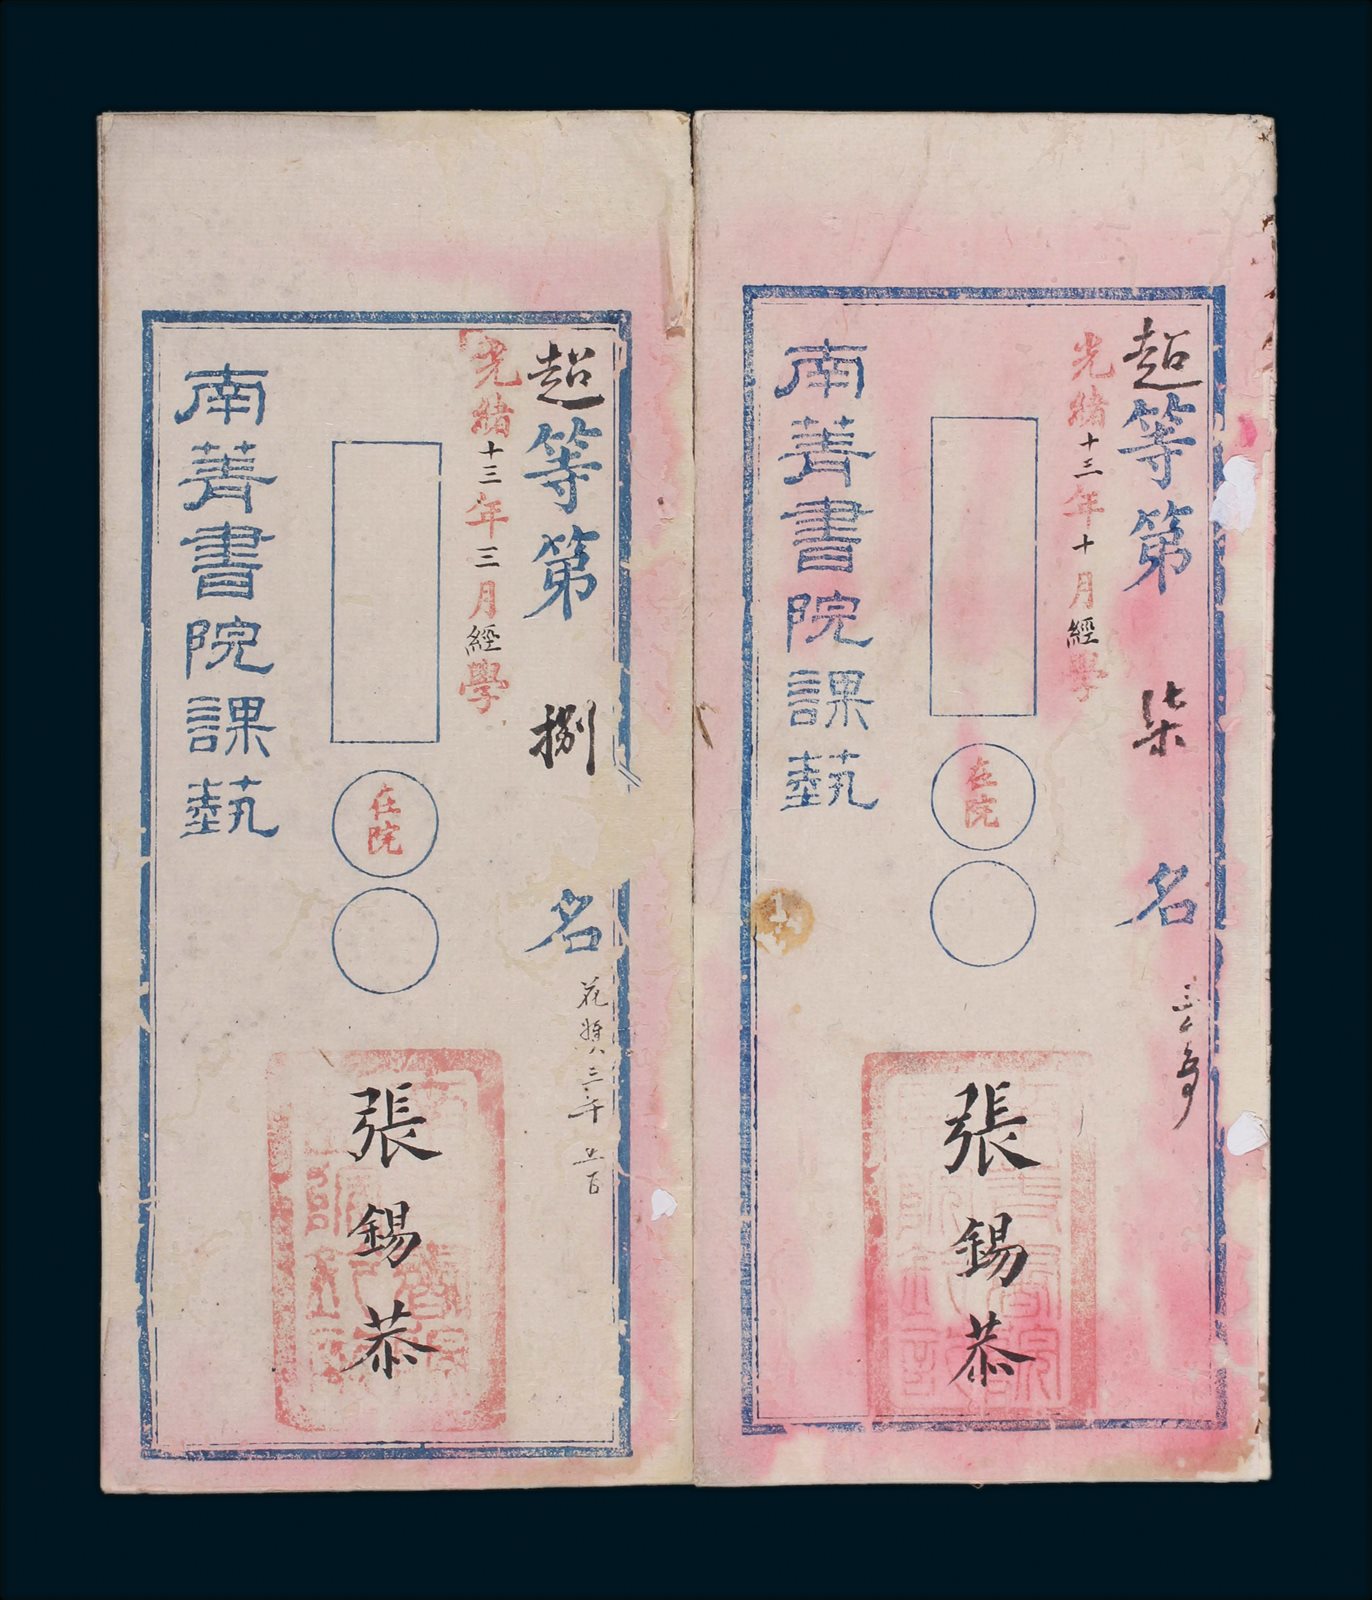 超等第柒名
三千
光緒十三年十月經學
在院
張錫恭
南菁書院課藝
超等第捌名
花獎三千五百
光緒十三年三月經學
在院
張錫恭
南菁書院課藝